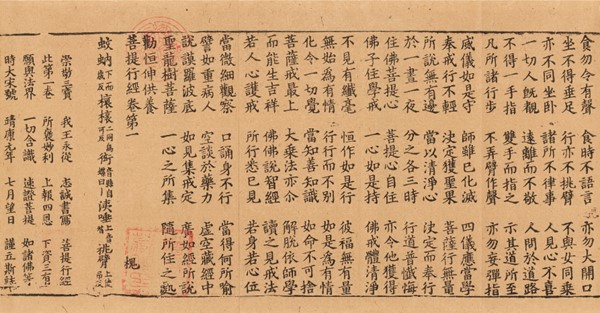 食勿令有聲 食時不語言 亦勿大開口
坐不得垂足 行亦不挑臂 不與女同乘
亦不同坐卧 諸所不律事 人見心不喜
一切人既覩 遠離而不敬 人間於道路
不得一手指 雙手而指之 示其道所至
凡所諸行步 不弄臂作聲 亦勿妄彈指
威儀如是守 師雖已化滅 四儀應當學
奉戒行不輕 決定獲聖果 菩薩行無量
所說無有邊 當以清淨心 決定而奉行
於一晝一夜 分之各三時 行道普懺悔
住佛菩提心 菩提心自住 亦令他獲得
佛子住學戒 一心如是持 佛戒體清淨
不見有纖毫 恒作如是行 彼福無有量
無始為有情 行行而不別 如是為有情
化令一切覺 當知善知識 如命不可捨
菩薩戒最上 大乘法亦尒 解脫依師學
而能生吉祥 佛佛說智經 讀之見戒法
若人心護戒 所行悉已見 若身若心位
當微細觀察 口誦身不行 當得何所喻
譬如重病人 空談於藥力 虛空藏經中
說謨羅波底 如見集戒定 廣如經所說
聖龍樹菩薩 一心之所集 隨所住之處
勸恒伸供養
菩提行經卷第一 槐
蚊蚋 挑臂
崇敬三寶 我王永從 志誠書寫 菩提行經
此第一卷 所裒妙利 上報四恩 下資三有
願與法界 一切含識 速證菩提 如諸佛等
時大宋號 靖康元年 七月望日 謹立斯誌